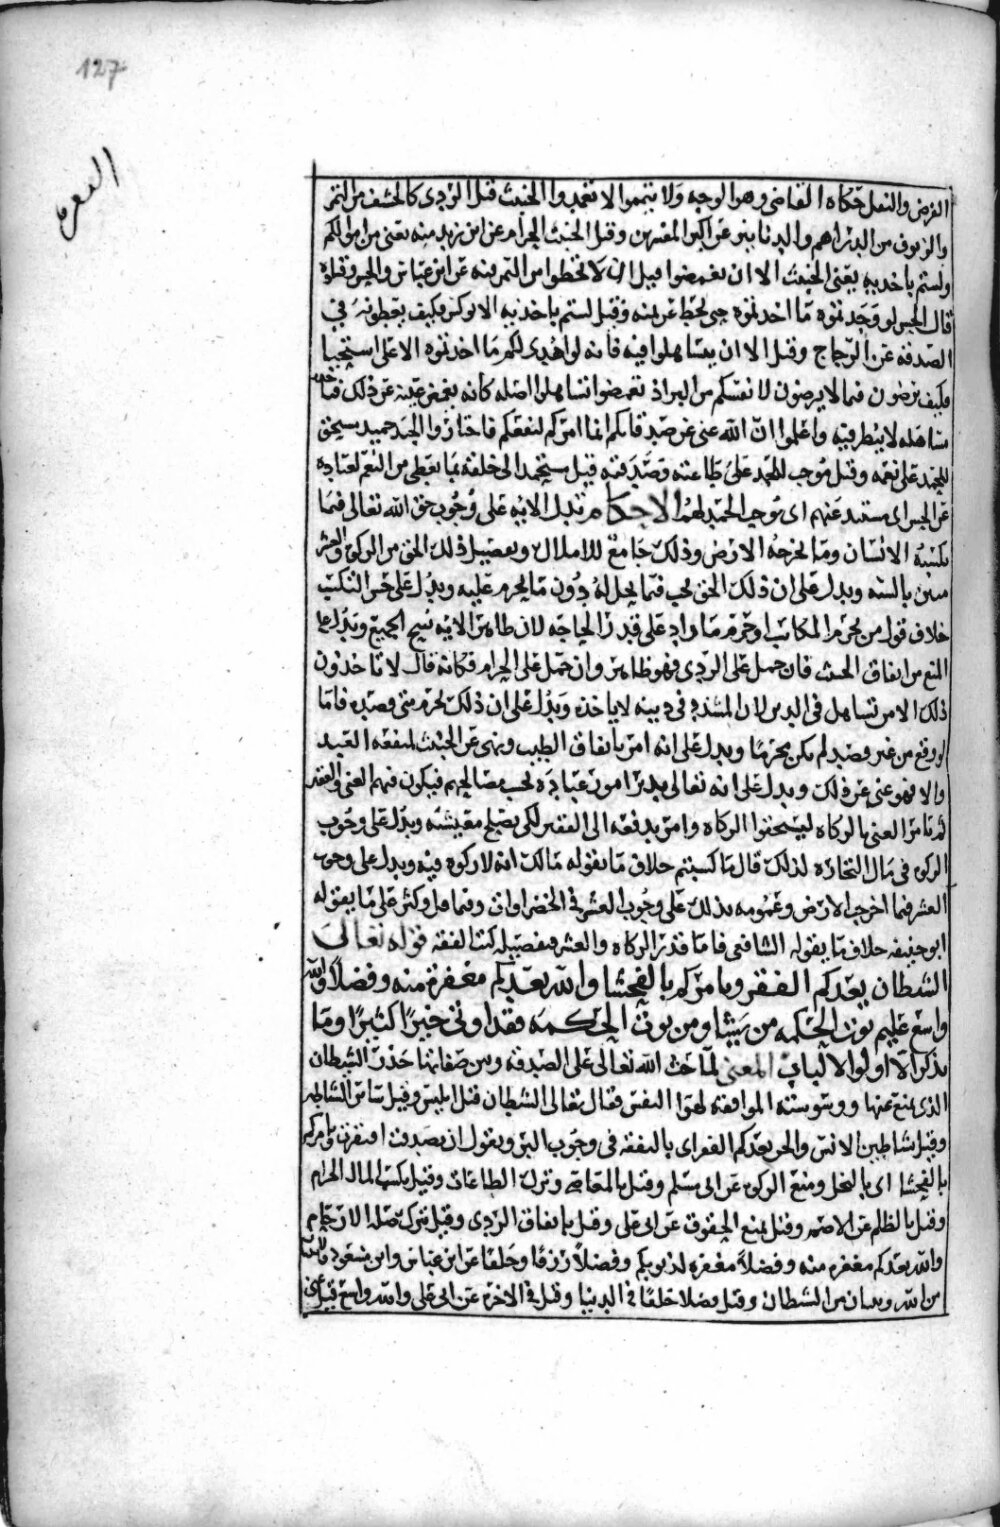 127
البقرة
الفرض والنفل حكاه القاضي وهو الوجه ولا تيمموا لا تعمدوا الخبيث قيل الردي كالحشف من التمر
والزيوف من الدراهم والدنانير عن اكثر المفسرين وقيل الخبيث الحرام عن ابن زيد منه يعني من اموالكم
ولستم باخذيه يعني الخبيث الا ان تغمضوا قيل الا ان تحطوا من الثمن فيه عن ابن عباس والحسن وقتادة
قال الحسن لو وجدتموه ما اخذتموه حتى يحط عن ثمنه وقيل لستم باخذيه الا بوكس فكيف تعطونه في
الصدقة عن الزجاج وقيل الا ان تساهلوا فيه فانه لو اهدي لكم ما اخذتموه الا على استحيا
فكيف ترضون فيما لا يرضون لانفسكم من البر اذ تغمضوا تساهلوا اصله كانه يغمض عينه عن ذلك
مساهلة لا ينظر فيه واعلموا ان الله غني عن صدقاتكم انما امركم لنفعكم فاختاروا الجيد حميد مستحق
للحمد على نعمه وقيل موجب للحمد على طاعته وصدقته قيل مستحمد الى خلقه بما يعطي من النعم لعباده
عن الحسن اي مستدعيهم اي توجب الحمد لهم الاحكام تدل الاية على وجوب حق الله تعالى فيما
يكتسبه الانسان وما تخرجه الارض وذلك جامع للاملاك وتفصيل ذلك الحق من الزكوة والعشر
مبين بالسنة ويدل على ان ذلك الحق يجب فيما يحل له دون ما يحرم عليه ويدل على حسن التكسب
خلاف قول من يحرم المكاسب او حرم ما زاد على قدر الحاجة لان ظاهر الاية تبيح الجميع وتدل على
المنع من انفاق الخبيث فان حمل على الردي فهو ظاهر وان حمل على الحرام فكانه قال لا تاخذون
ذلك الا من تساهل في الدين لان المتشدد في دينه لا ياخذه ويدل على ان ذلك يحرم متى قصده فاما
لو وقع من غير قصد لم يكن محرما ويدل على انه امر بانفاق الطيب ونهى عن الخبيث لمنفعة العبد
والا فهو غني عن ذلك ويدل على انه تعالى يدبر امور عباده بحسب مصالحهم فيكون فيهم الغني والفقير
ثم تامر الغني بالزكاة ليستحقوا الزكاة وامر بدفعه الى الفقير لكي يصلح معيشته ويدل على وجوب
الزكوة في مال التجارة لذلك قال ما كسبتم خلاف ما يقوله مالك انه لا زكوة فيه ويدل على وجوب
العشر فيما اخرجت الارض وعمومه يدل على وجوب العشر في الخضراوات وفيما قل وكثر على ما يقوله
ابو حنيفة خلاف ما يقوله الشافعي فاما قدر الزكاة والعشر فتفصيله كتب الفقه قوله تعالى
الشيطان يعدكم الفقر ويامركم بالفحشا والله يعدكم مغفرة منه وفضلا والله
واسع عليم يوتي الحكمة من يشا ومن يوت الحكمة فقد اوتي خيرا كثيرا وما
يذكر الا اولوا الالباب المعنى لما حث الله تعالى على الصدقة وبين صفاتها حذر الشيطان
الذي يمنع عنها ووسوسته الموافقة لهوا النفس فقال تعالى الشيطان قيل ابليس وقيل سائر الشياطين
وقيل شياطين الانس والجن يعدكم الفقر اي بالنفقة في وجوه البر ويقول ان تصدقت افتقرت ويامركم
بالفحشا اي بالبخل ومنع الزكوة عن ابي مسلم وقيل بالمعاصي وترك الطاعات وقيل بكسب المال الحرام
وقيل بالظلم عن الاصم وقيل بمنع الحقوق عن ابي علي وقيل بانفاق الردي وقيل بترك صلة الارحام
والله يعدكم مغفرة منه وفضلا مغفرة لذنوبكم وفضلا رزقا وخلفا عن ابن عباس وابن مسعود
من الله وبيان من الشيطان وقيل فضلا خلفا في الدنيا وقيل في الاخرة عن ابي علي والله واسع قيل